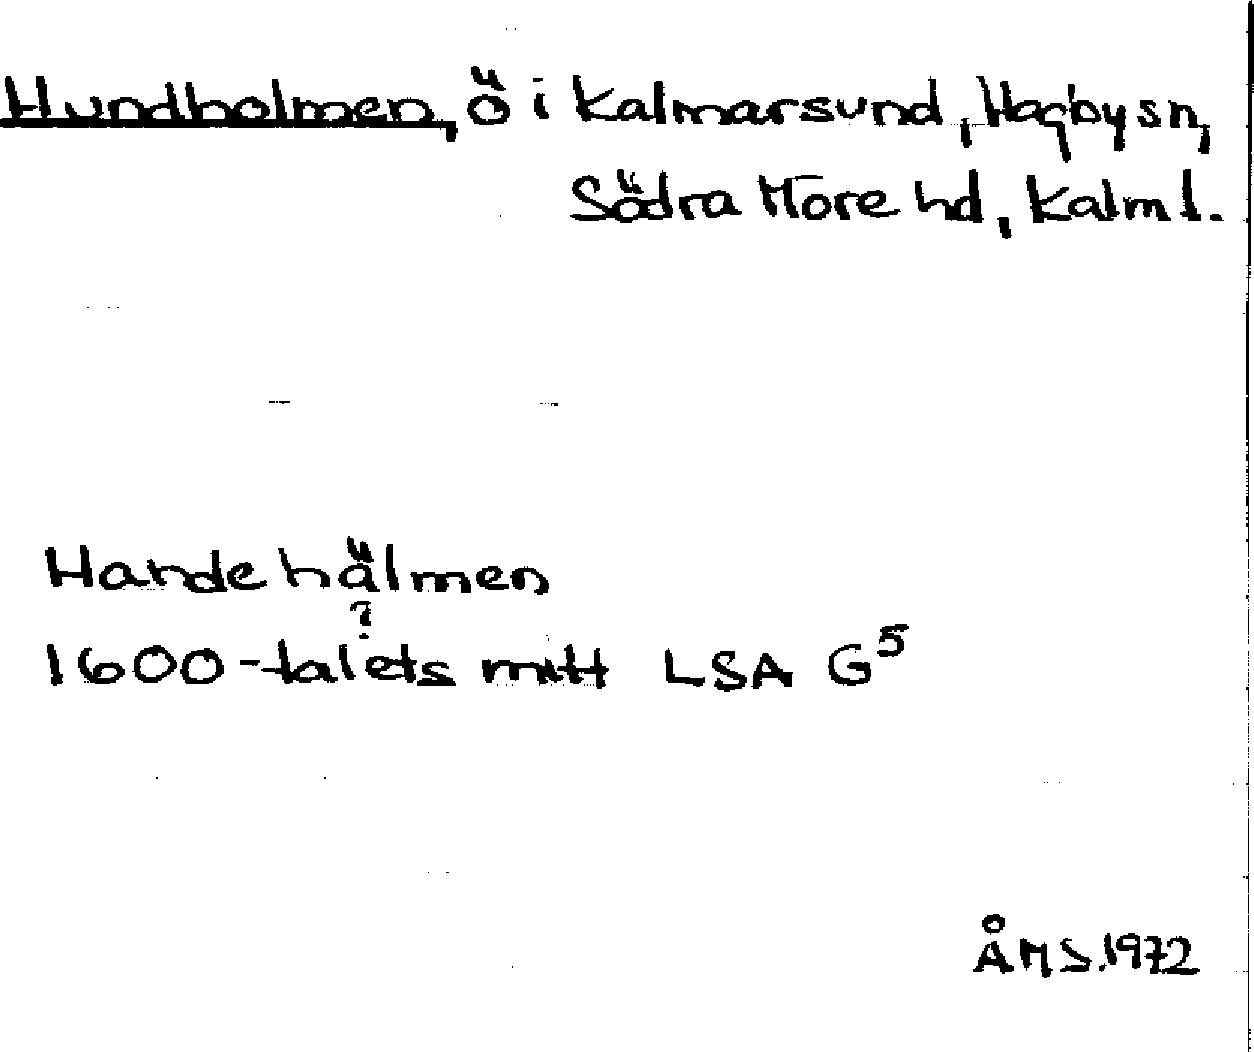 Hundholmen, ö i Kalmarsund, Hagby sn,
Södra Möre hd, Kalm l.
Hande hälmen
?
1600-talets mitt LSA G5
ÅMS.1972